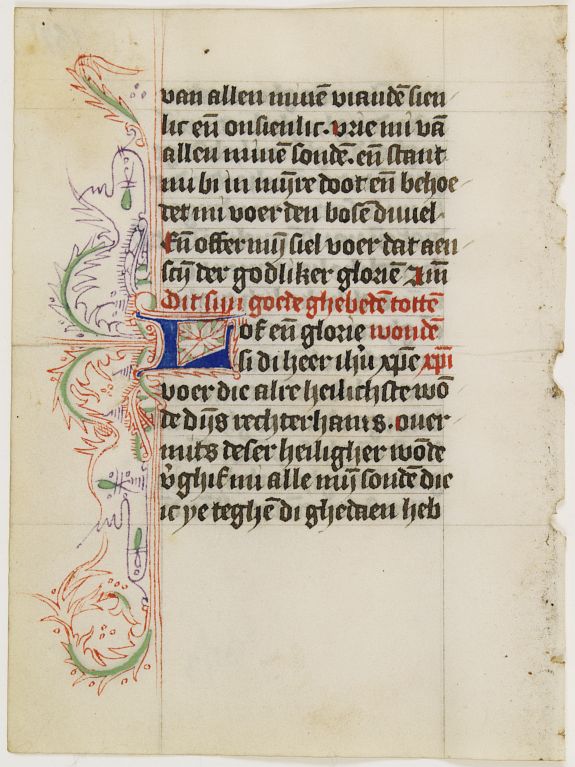 van allen minē viandē sien
lic eñ onsienlic. vrie mi vā
allen minē sondē. eñ stant
mi bi in mijre doot eñ behoe
det mi voer den bosē duuel.
Eñ offer mijn siel voer dat aen
scijn der godliker gloriē Amē
Dit sijn goede ghebedē tottē
Lof eñ glorie wondē
si di heer ihū xpē xpi
voer die alre heilichste wō
de dijs rechterhants. ouer
mits deser heiligher wōde
v̄ghif mi alle mijn sondē die
ic ye teghē di ghedaen heb